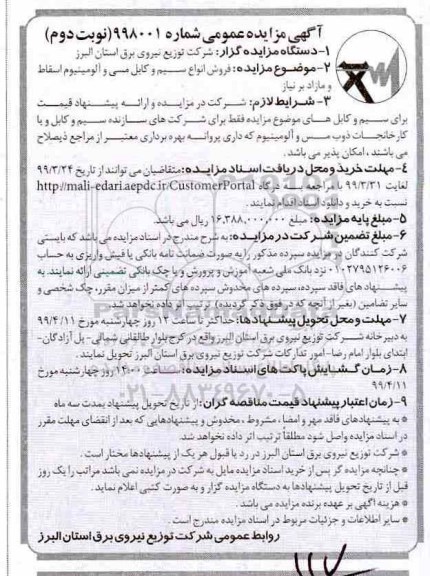 آگهی مزایده عمومی شماره ۹۹۸۰۰۱ (نوبت دوم)
۱-دستگاه مزایده گزار: شرکت توزیع نیروی برق استان البرز
۲-موضوع مزایده: فروش انواع سیم و کابل مسی و آلومینیوم اسقاط
و مازاد بر نیاز
۳- شرایط لازم: شرکت در مزایده و ارائه پیشنهاد قیمت
برای سیم و کابل های موضوع مزایده فقط برای شرکت های سازنده سیم و کابل و یا
کارخانجات ذوب مس و آلومینیوم که داری پروانه بهره برداری معتبر از مراجع ذیصلاح
می باشند ، امکان پذیر می باشد .
۴-مهلت خرید و محل دریافت اسناد مزایده: متقاضیان می توانند از تاریخ ۹۹/۳/۲۴
لغایت ۹۹/۳/۳۱ با مراجعه به درگاه http://mali-edari.aepdc.ir/CustomerPortal
نسبت به خرید و دانلود اسناد اقدام نمایند .
۵-مبلغ پایه مزایده: مبلغ ۱۶,۳۸۸,۰۰۰,۰۰۰ ریال می باشد.
۶-مبلغ تضمین شرکت در مزایده: به شرح مندرج در اسناد مزایده می باشد که بایستی
شرکت کنندگان در مزایده سپرده مذکور را به صورت ضمانت نامه بانکی یا فیش واریزی به حساب
۰۱۰۲۷۹۵۱۲۶۰۰۶ نزد بانک ملی شعبه آموزش و پرورش و یا چک بانکی تضمینی ارائه نمایند. به
پیشنهاد های فاقد سپرده، سپرده های مخدوش سپرده های کمتر از میزان مقرر، چک شخصی و
سایر تضامین (بغیر از آنچه که در فوق ذکر گردیده) ترتیب اثر داده نخواهد شد.
۷-مهلت و محل تحویل پیشنهادها: حداکثر تا ساعت ۱۲ روز چهارشنبه مورخ ۹۹/۴/۱۱
به دبیرخانه شرکت توزیع نیروی برق استان البرز واقع در کرج بلوار طالقانی شمالی- پل آزادگان-
ابتدای بلوار امام رضا-امور تدارکات شرکت توزیع نیروی برق استان البرز تحویل نمایند .
۸-زمان گشایش پاکت های اسناد مزایده: ساعت ۱۴:۰۰ روز چهارشنبه مورخ
۹۹/۴/۱۱
۹-زمان اعتبار پیشنهاد قیمت مناقصه گران: از تاریخ تحویل پیشنهاد بمدت سه ماه
* به پیشنهادهای فاقد مهر و امضا ، مشروط ، مخدوش و پیشنهادهایی که بعد از انقضای مهلت مقرر
در اسناد مزایده واصل شود مطلقاً ترتیب اثر داده نخواهد شد.
* شرکت توزیع نیروی برق استان البرز در رد یا قبول هر یک از پیشنهادها مختار است .
* چنانچه مزایده گر پس از خرید اسناد مزایده مایل به شرکت در مزایده نمی باشد مراتب را یک روز
قبل از تاریخ تحویل پیشنهادها به دستگاه مزایده گزار و به صورت کتبی اعلام نماید .
* هزینه آگهی بر عهده برنده مزایده می باشد .
* سایر اطلاعات و جزئیات مربوط در اسناد مزایده مندرج است .
روابط عمومی شرکت توزیع نیروی برق استان البرز